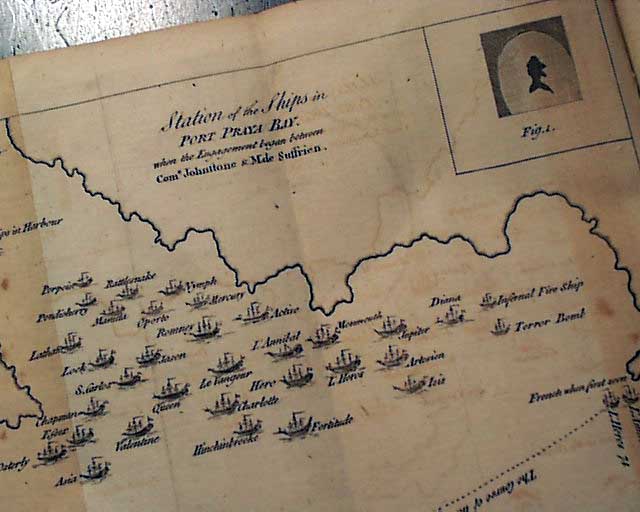 Station of the Ships in
PORT PRAYA BAY.
when the Engagement began between
Com.e Johnstone & M.de Suffrien.
Fig. 1.
ips in Harbour
Porpoise
Rattlesnake
Nymph
Pondicherry
Manilla
Oporto
Mercury
Romney
Active
Diana
Infernal Fire Ship
Terror Bomb
Monmouth
Jupiter
L'Annibal
Latham
Lock
Saxon
Le Vangeur
Hero
L'Heros
Artesien
Isis
S.Carlos
Queen
Charlotte
Chapman
Essex
Valentine
Hinchinbrooke
Fortitude
Osterly
Asia
French when first seen
L'Heros 74
The Course of the